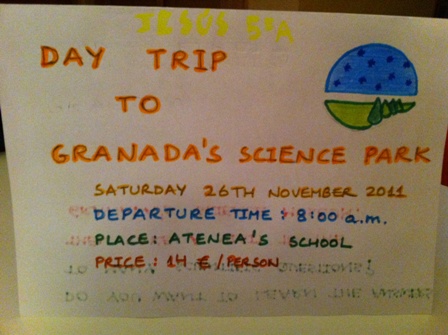 JESÚS 5ºA
DAY TRIP
TO
GRANADA'S SCIENCE PARK
SATURDAY 26TH NOVEMBER 2011
DEPARTURE TIME: 8:00 a.m.
PLACE: ATENEA'S SCHOOL
PRICE: 14 €/PERSON
DO YOU WANT TO LEARN THE ANSWERS